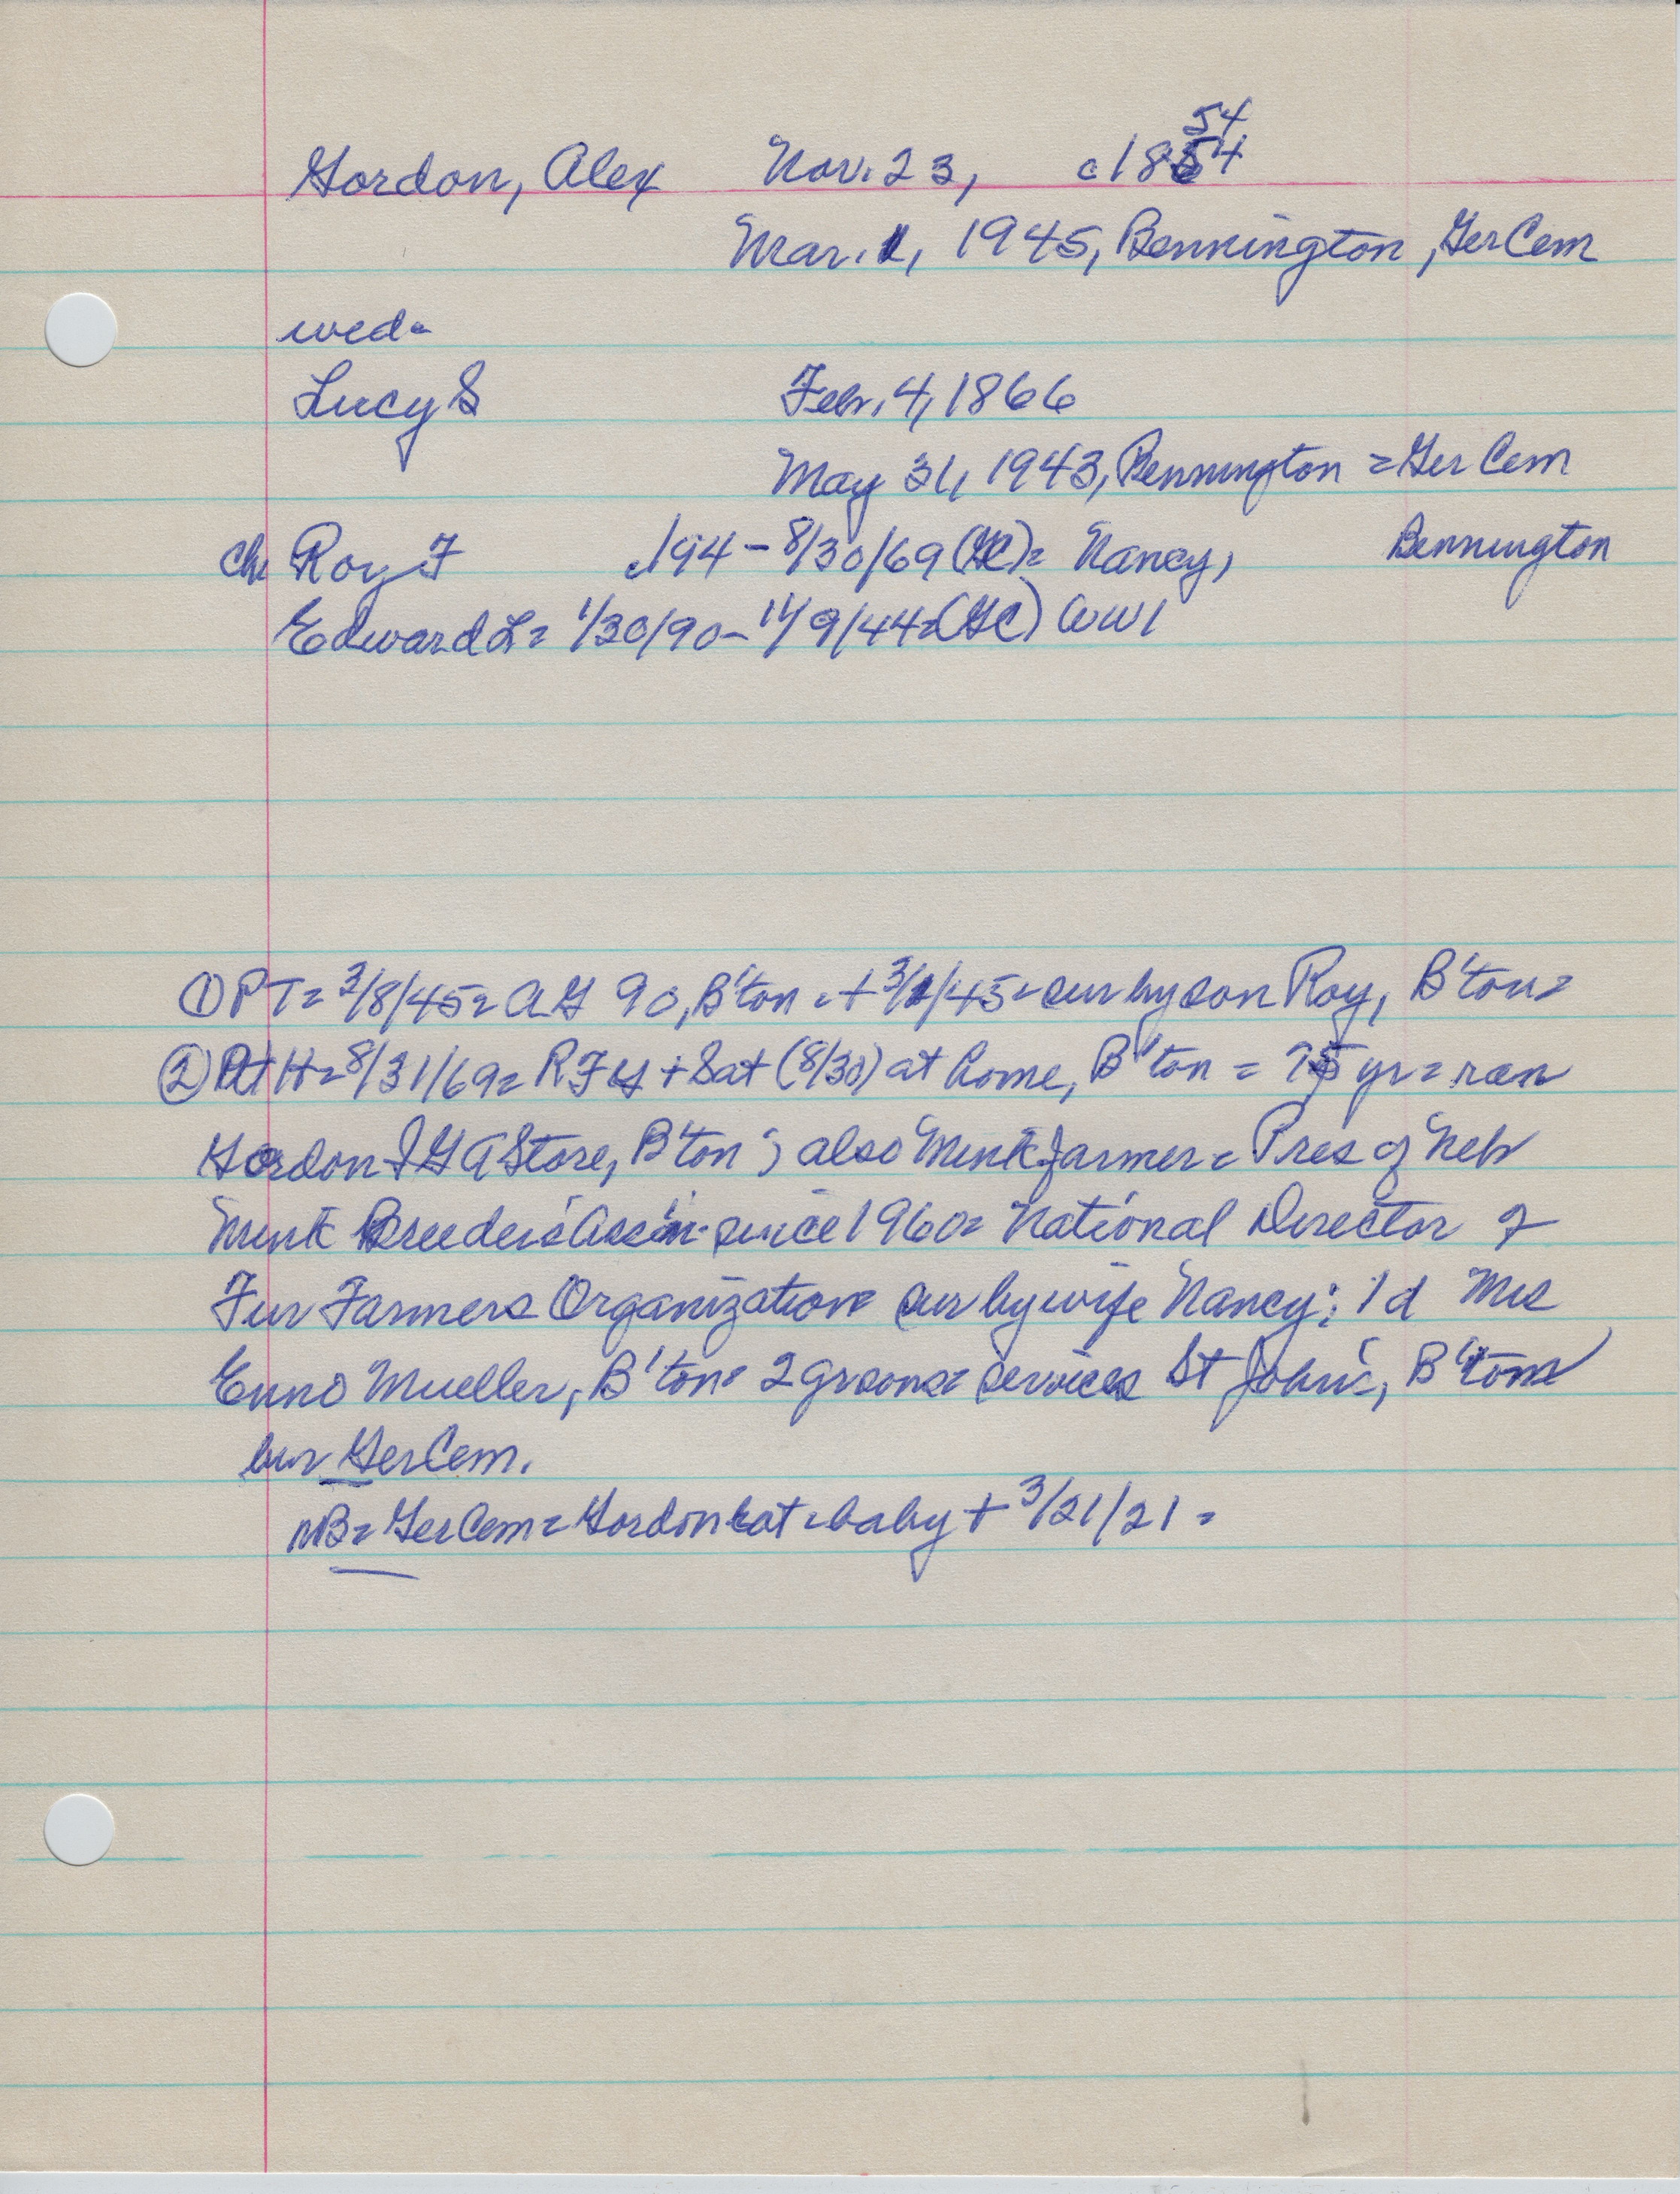 54
Gordon, Alex Nov. 23, c1854
Mar. 1, 1945, Bennington, Ger Cem
wed=
Lucy S Feb. 4, 1866
May 31, 1943, Bennington = Ger Cem
Ch Roy F c194 - 8/30/69 (GC) = Nancy, Bennington
Edward L = 1/30/90 - 11/9/44 = (GC) WW1
① PT = 3/8/45 = AG 90, B'ton = + 3/1/45 = sur by son Roy, B'ton =
② H = 8/31/69 = RFG + Sat (8/30) at home, B'ton = 75 yr = ran
Gordon IGA Store, B'ton ; also Mink farmer = Pres of Neb
Mink Breeder's Ass'n since 1960 = National Director of
Fur Farmers Organization = sur by wife Nancy; 1 d Mrs
Enno Mueller, B'ton = 2 grsons = services St John's, B'ton =
bur Ger Cem.
NB = Ger Cem = Gordon = baby + 3/21/21 =